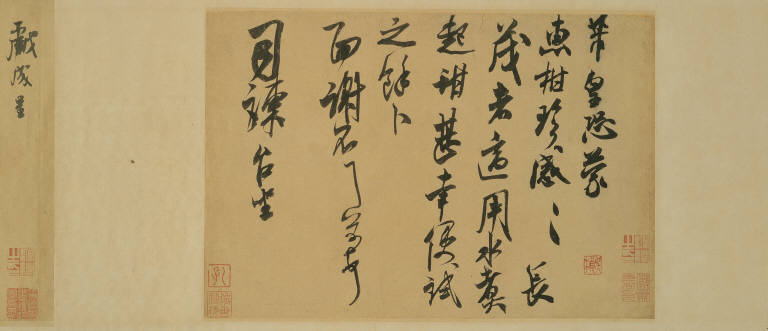 芾皇恐蒙
惠柑珍感〻長
茂者適用水煮
起甜甚幸便試
之餘卜
面謝不一芾頓首
司諫台坐
戲成呈